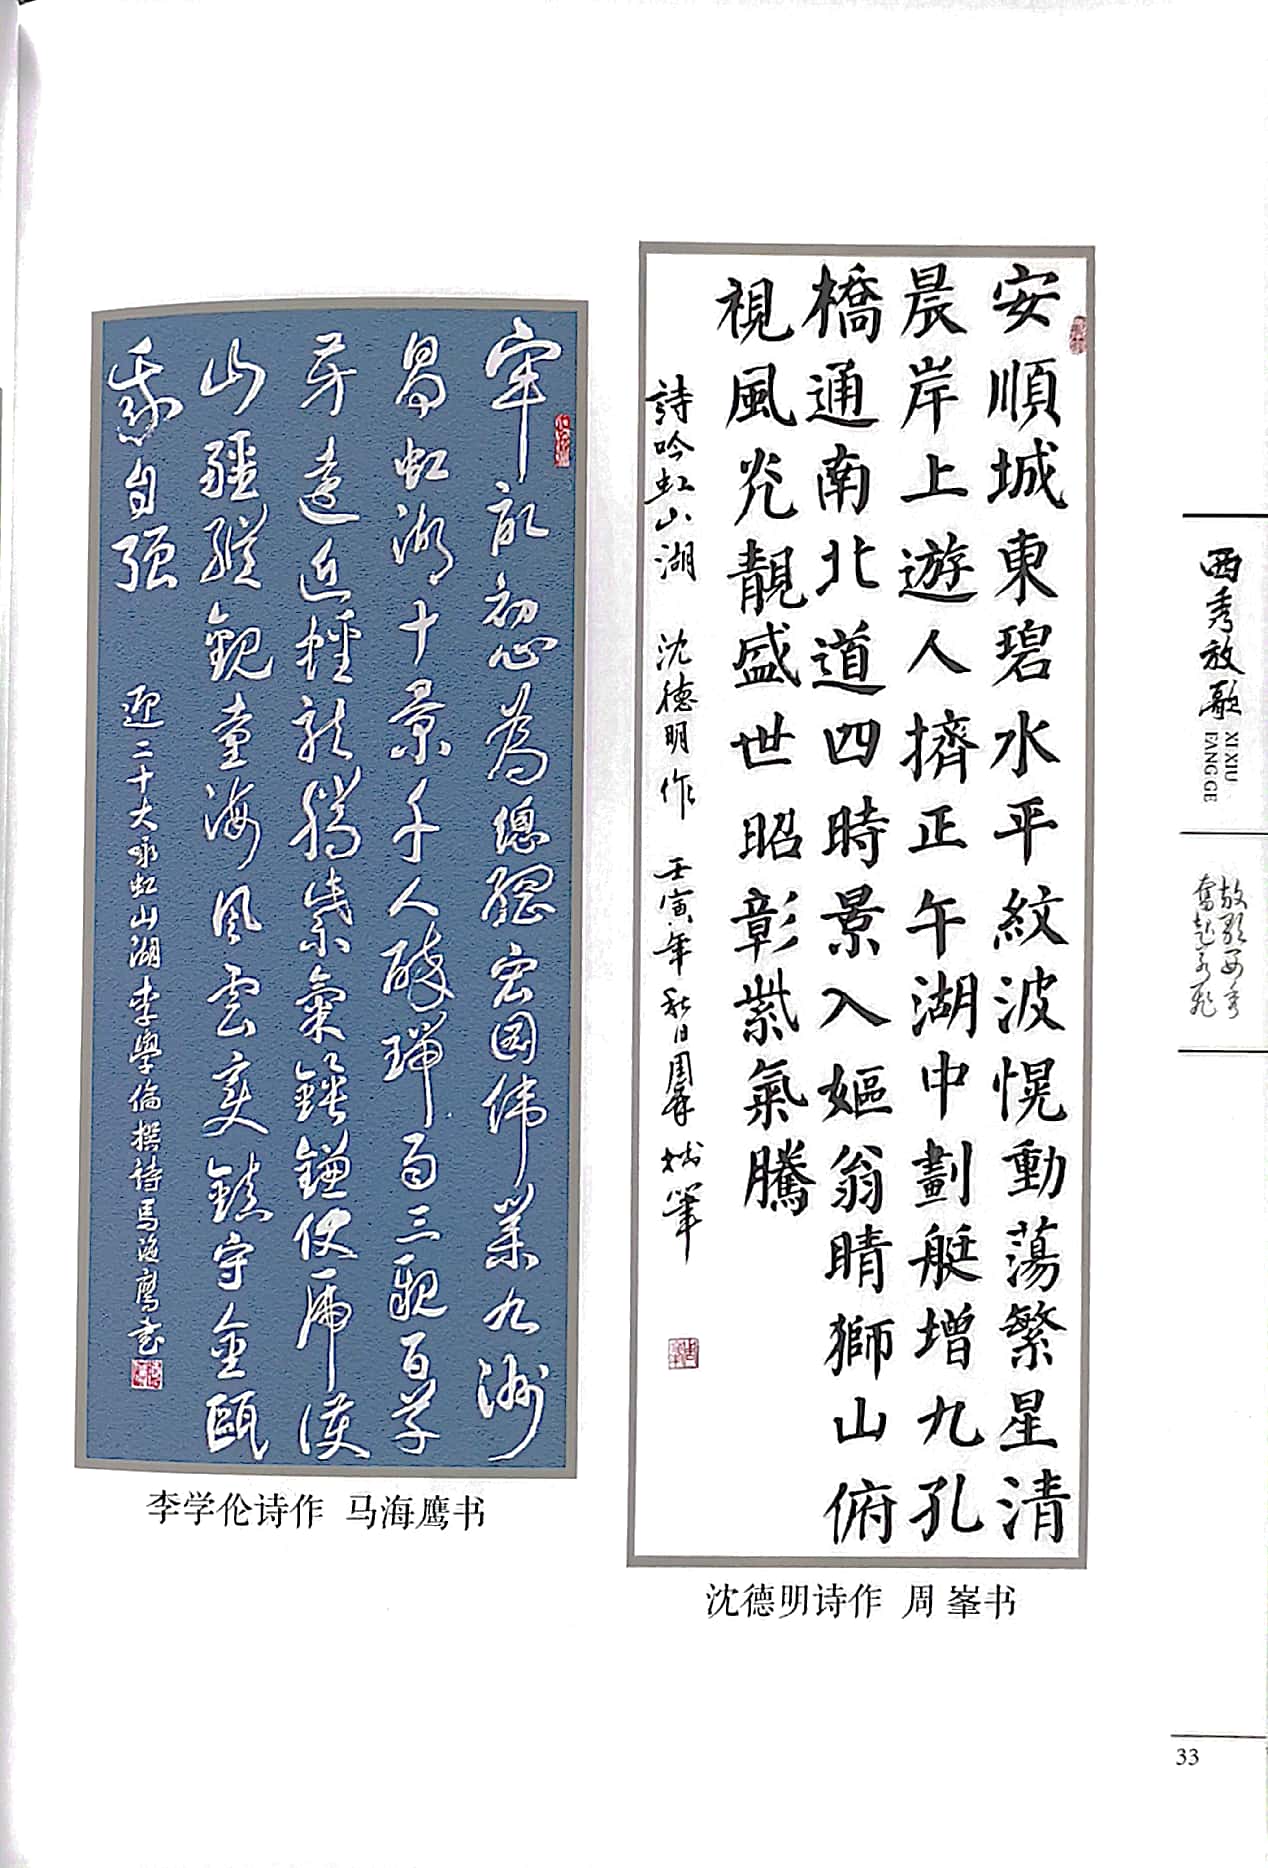 安順城東碧水平紋波慌動蕩繁星清
晨岸上遊人擠正午湖中劃艇增九孔
橋通南北道四時景入嫗翁晴獅山俯
視風光靚盛世昭彰紫氣騰
詩吟虹山湖 沈德明作 壬寅年秋日周峯拙筆
沈德明诗作 周峯书
牢記初心為總綱宏图伟業九洲
昌虹湖十景千人醉瑞 三歌百
遠近 龍騰紫氣鋒鐮使虎
山疆縱觀 海風雲变鎮守金甌
我自强
迎二十大咏虹山湖李學倫撰詩馬海鹰书
李学伦诗作 马海鹰书
西秀放歌
XIXIU
FANGGE
放歌西秀
奮起
33